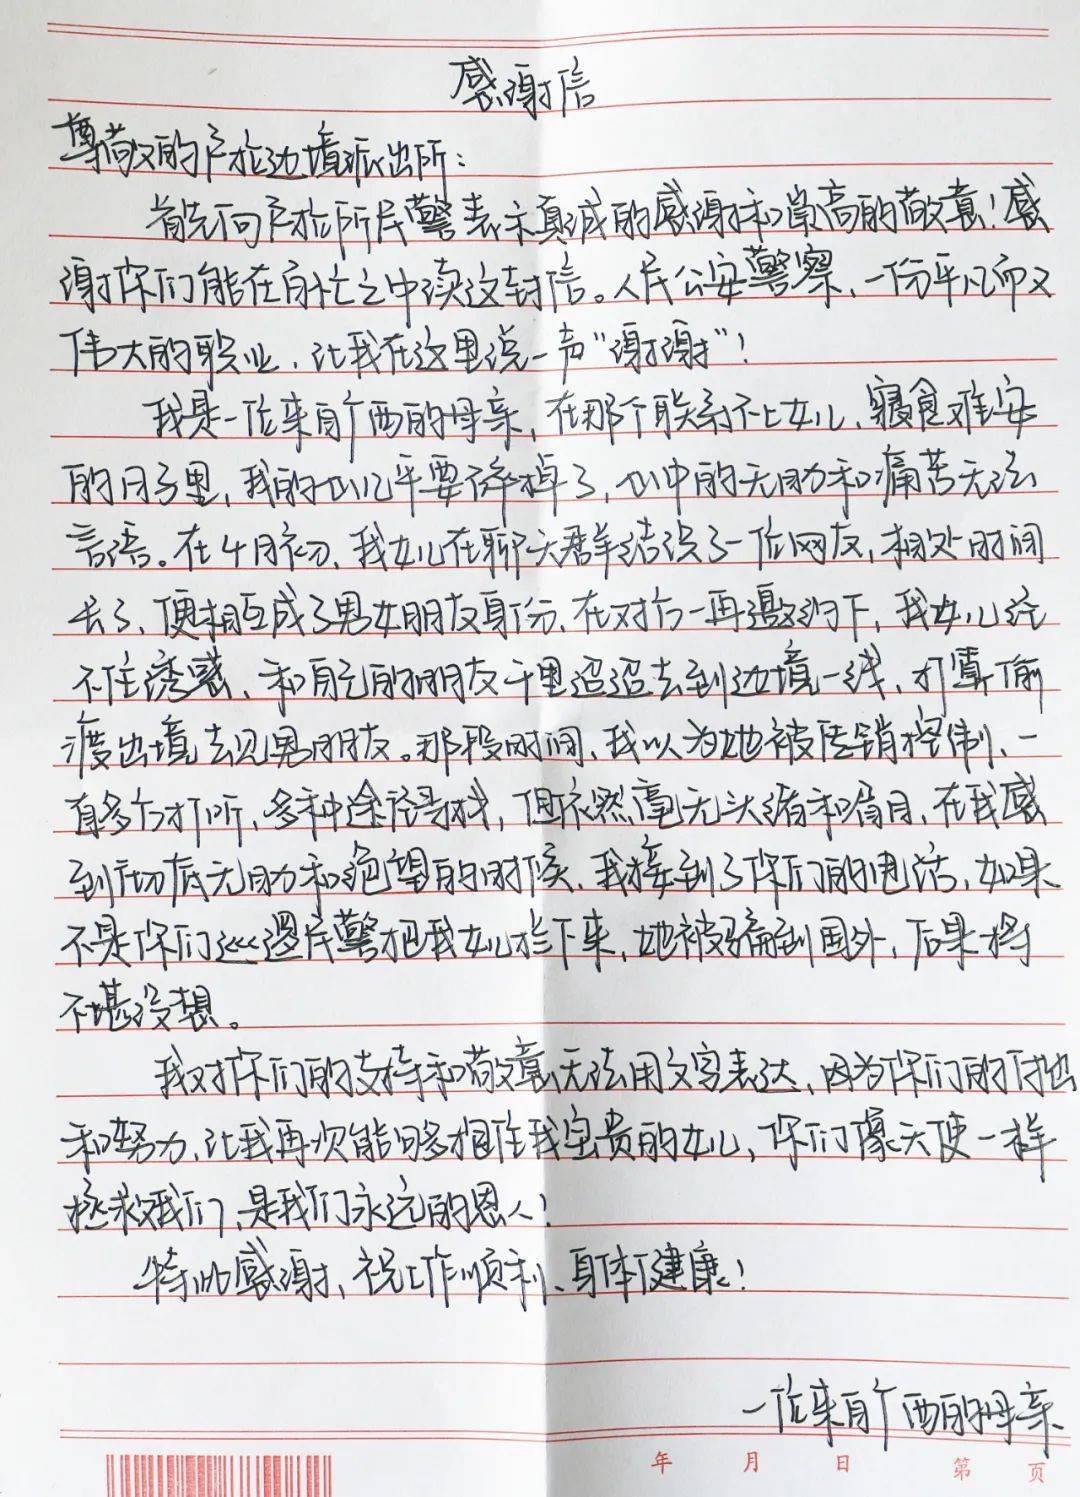 感谢信
尊敬的户拉边境派出所：
首先向户拉所民警表示真诚的感谢和崇高的敬意！感
谢你们能在百忙之中读这封信。人民公安警察，一份平凡而又
伟大的职业，让我在这里说一声“谢谢”！
我是一位来自广西的母亲，在那个联系不上女儿、寝食难安
的日子里，我的心几乎要碎掉了，心中的无助和痛苦无法
言语。在4月初，我女儿在聊天群结识了一位网友，相处时间
长了，便相互成了男女朋友身份，在对方一再邀约下，我女儿经
不住诱惑，和自己的朋友千里迢迢去到边境一线，打算偷
渡出境去见男朋友。那段时间，我以为她被传销控制，一
直多方打听，多种途径寻找，但依然毫无头绪和眉目，在我感
到彻底无助和绝望的时候，我接到了你们的电话，如果
不是你们巡逻民警把我女儿拦下来，她被骗到国外，后果将
不堪设想。
我对你们的支持和敬意无法用文字表达，因为你们的付出
和努力，让我再次能够拥住我宝贵的女儿，你们像天使一样
拯救我们，是我们永远的恩人！
特此感谢，祝工作顺利、身体健康！
一位来自广西的母亲
年 月 日 第 页